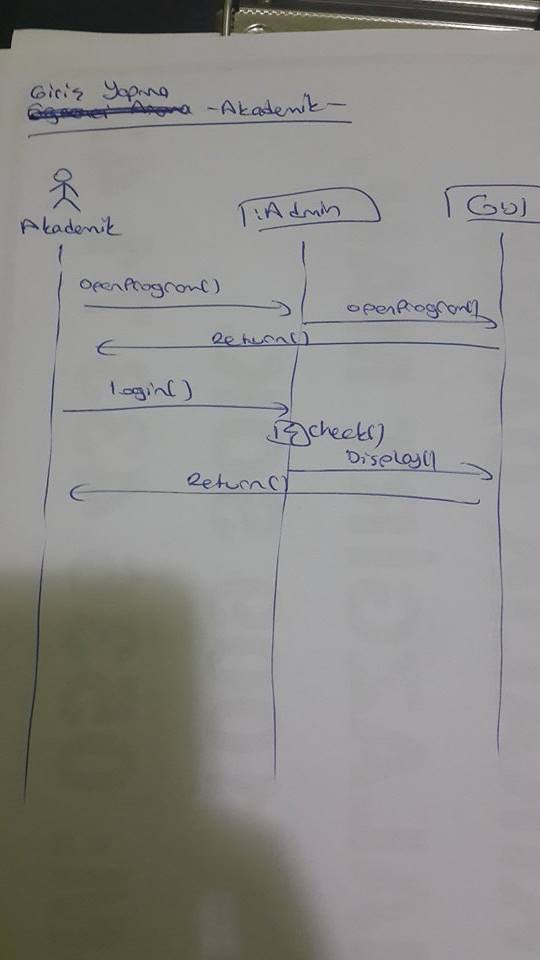 Giriş Yapma
-Akademik-
Akademik
:Admin
GUI
openProgram()
openProgram()
Return()
login()
check()
Display()
Return()